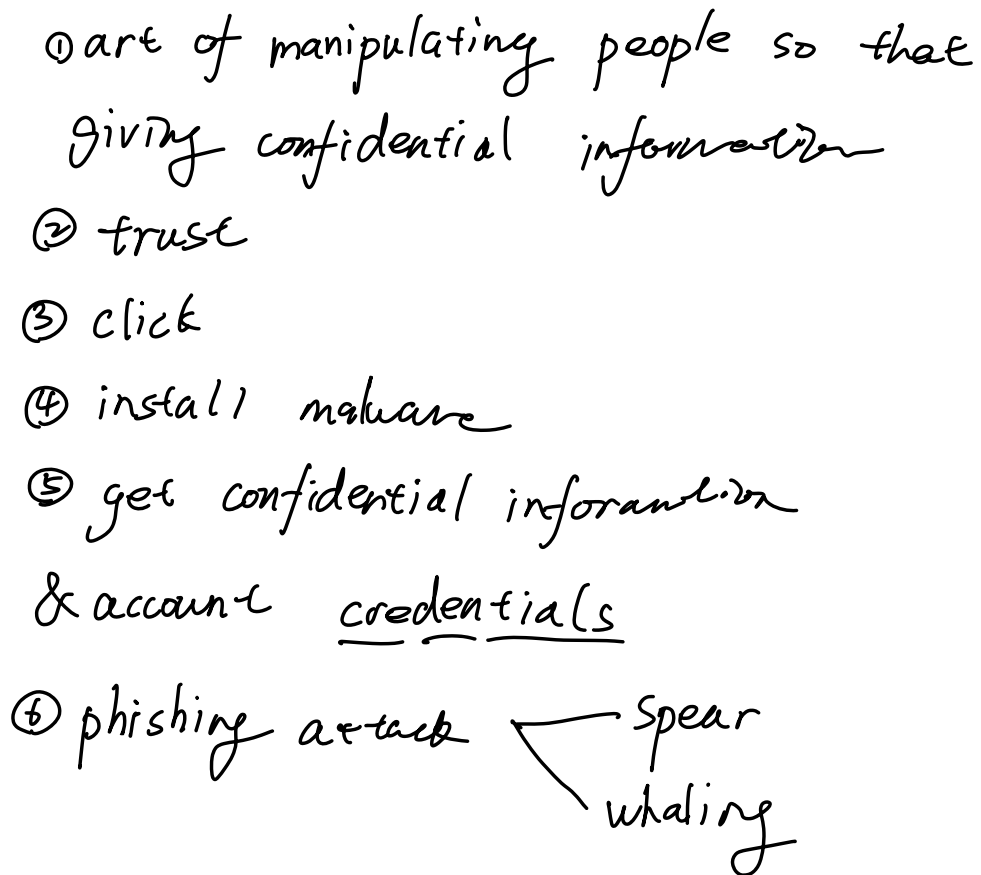 ① art of manipulating people so that
giving confidential information
② trust
③ click
④ install malware
⑤ get confidential inforamtion
& account credentials
⑥ phishing attack spear
whaling